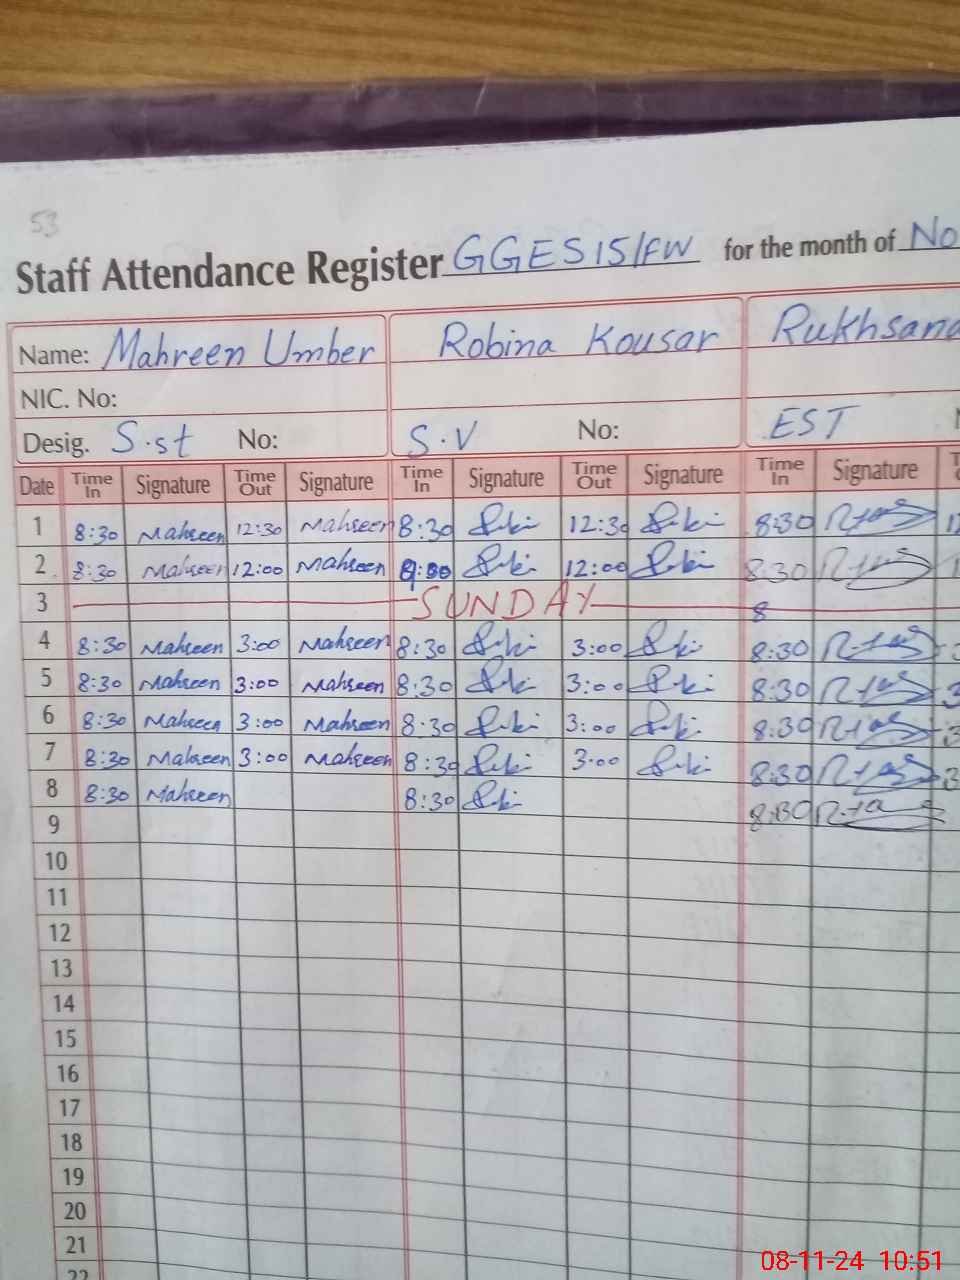 53
Staff Attendance Register GGES 15/FW for the month of No
Name: Mahreen Umber Robina Kousar Rukhsana
NIC. No:
Desig. S.st No: S.V No: EST
Date Time In Signature Time Out Signature Time In Signature Time Out Signature Time In Signature
1 8:30 Mahreen 12:30 Mahreen 8:30 12:30 8:30
2 8:30 Mahreen 12:00 Mahreen 12:00 8:30
3 SUNDAY 8
4 8:30 Mahreen 3:00 Mahreen 8:30 3:00 8:30
5 8:30 Mahreen 3:00 Mahreen 8:30 3:00 8:30
6 8:30 Mahreen 3:00 Mahreen 8:30 3:00 8:30
7 8:30 Mahreen 3:00 Mahreen 8:30 3:00 8:30
8 8:30 Mahreen 8:30 8:30
9
10
11
12
13
14
15
16
17
18
19
20
21
22
08-11-24 10:51